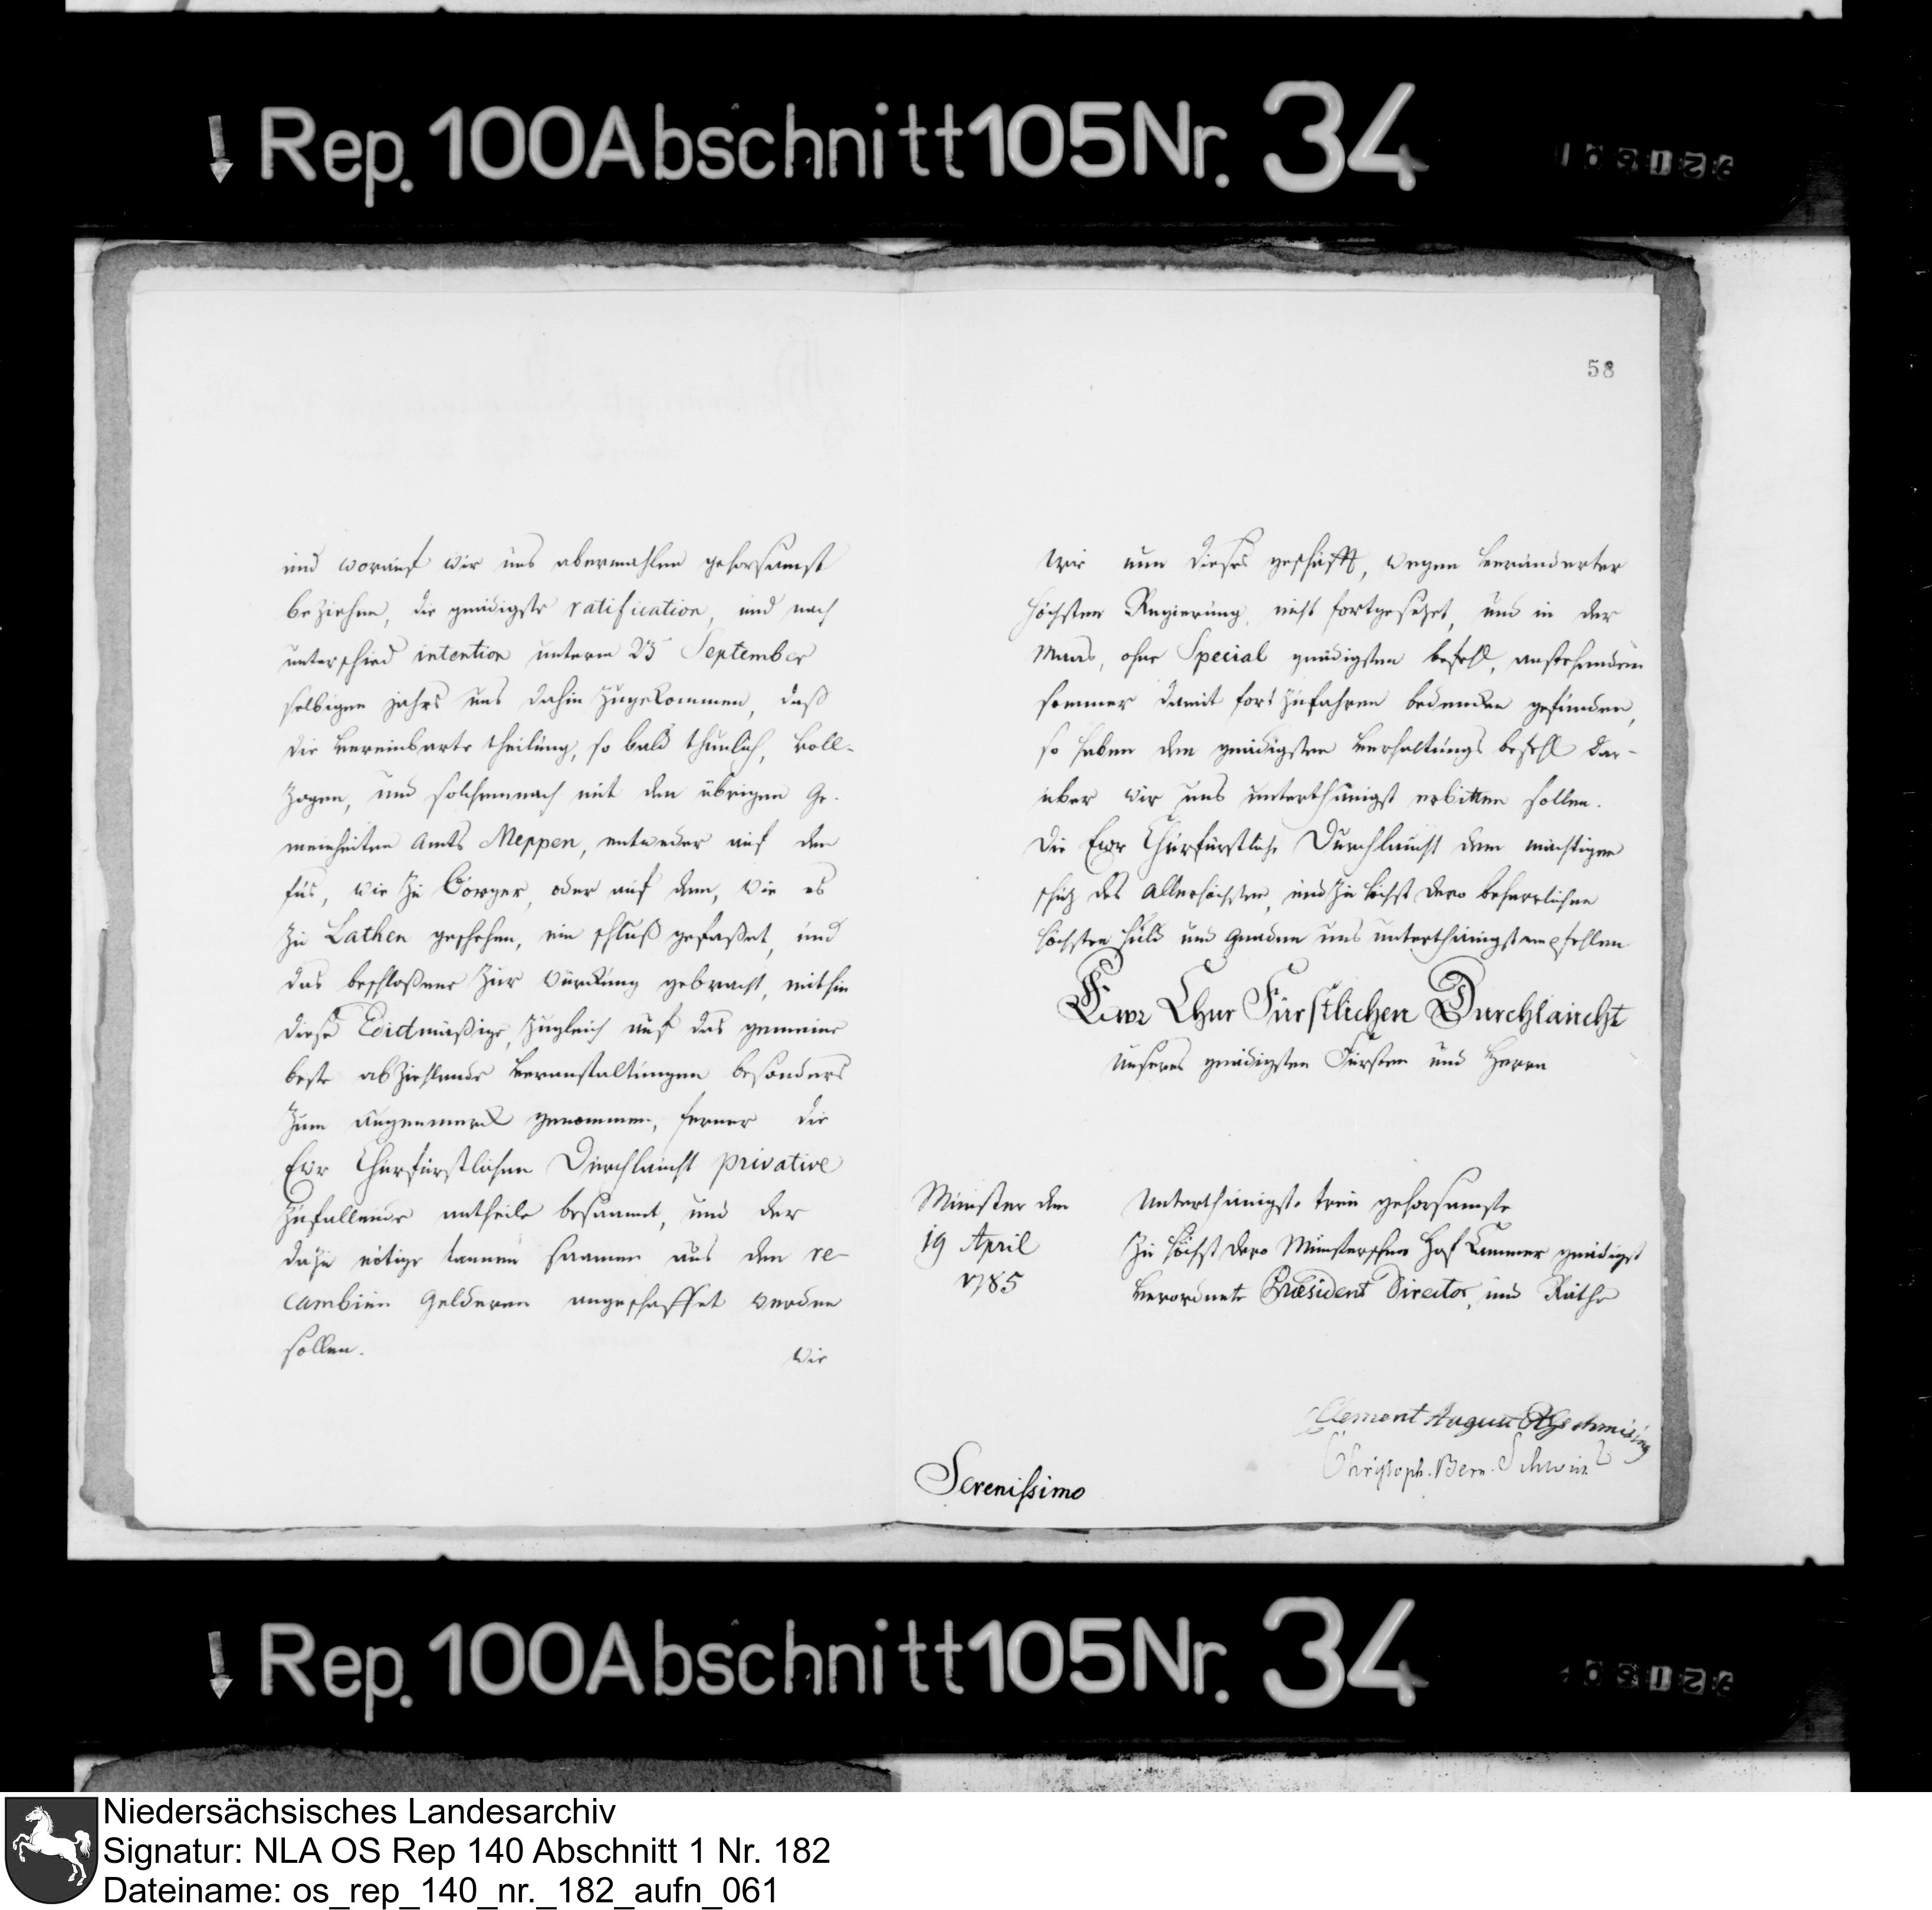 Rep. 100 Abschnitt 105 Nr. 34
und worauf wir uns abermahlen gehorsamst
beziehen, die gnädigste ratification, und nach
unterschied intention unterm 23 September
selbigen jahrs uns dahin zugekommen, daß
die vereinbarte theilung, so bald thunlich, voll-
zogen, und solchemnach mit den übrigen Ge-
meinheiten Amts Meppen, entweder auf den
fus, wie zu Börger, oder auf den, wie es
zu Lathen geschehen, ein schluß gefaßet, und
das beschloßene zur würckung gebracht, mithin
diese Edictmäßige, zugleich auf das gemeine
beste abziehlende veranstaltungen besonders
zum augenmerck genommen, ferner die
Ewr Churfürstlichen Durchlaucht privative
zufallende antheile besaamet, und der
dazu nötige tannen saamen aus den re-
cambien Gelderen angeschaffet werden
sollen.
wie
58
wie nun dieses geschäfft, wegen veränderter
höchsten Regierung nicht fortgesezet, und in der
Maas, ohne Special gnädigsten befehl, anstehenden
sommer damit fort zufahren bedencken gefunden,
so haben den gnädigsten verhaltungs befehl dar-
über wir uns unterthänigst erbitten sollen.
Die Ewr Churfürstliche Durchlaucht dem mächtigen
schuz des Allerhöchsten, und zu höchst dero beharrlichen
höchsten huld und Gnaden uns unterthänigst empfehlen
Ewr Chur Fürstlichen Durchlaucht
Unseres gnädigsten Fürsten und Herrn
Münster den
19 April
1785
Unterthänigst treu gehorsamste
zu höchst dero Münsterschen Hof Cammer gnädigst
verordnete Præsident Director, und Räthe
Clement August
Christoph. Bern.
Serenissimo
Rep. 100 Abschnitt 105 Nr. 34
Niedersächsisches Landesarchiv
Signatur: NLA OS Rep 140 Abschnitt 1 Nr. 182
Dateiname: os_rep_140_nr._182_aufn_061